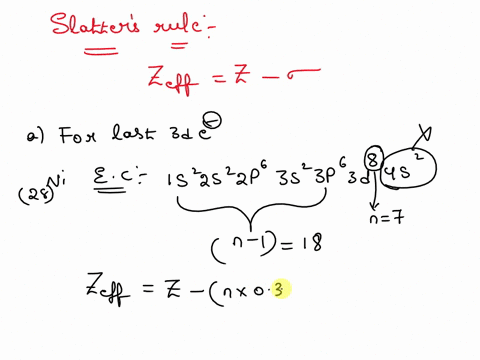 Slatter's rule:-
Zeff = Z - σ
a) For last 3d e⁻
(28)Ni E.C:- 1S² 2S² 2P⁶ 3S² 3P⁶ 3d⁸ 4S²
n=7
(n-1) = 18
Zeff = Z - (n x 0.3